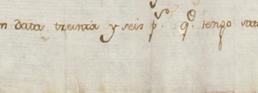 n data treinta y seis p.ˢ q.ᵉ tengo